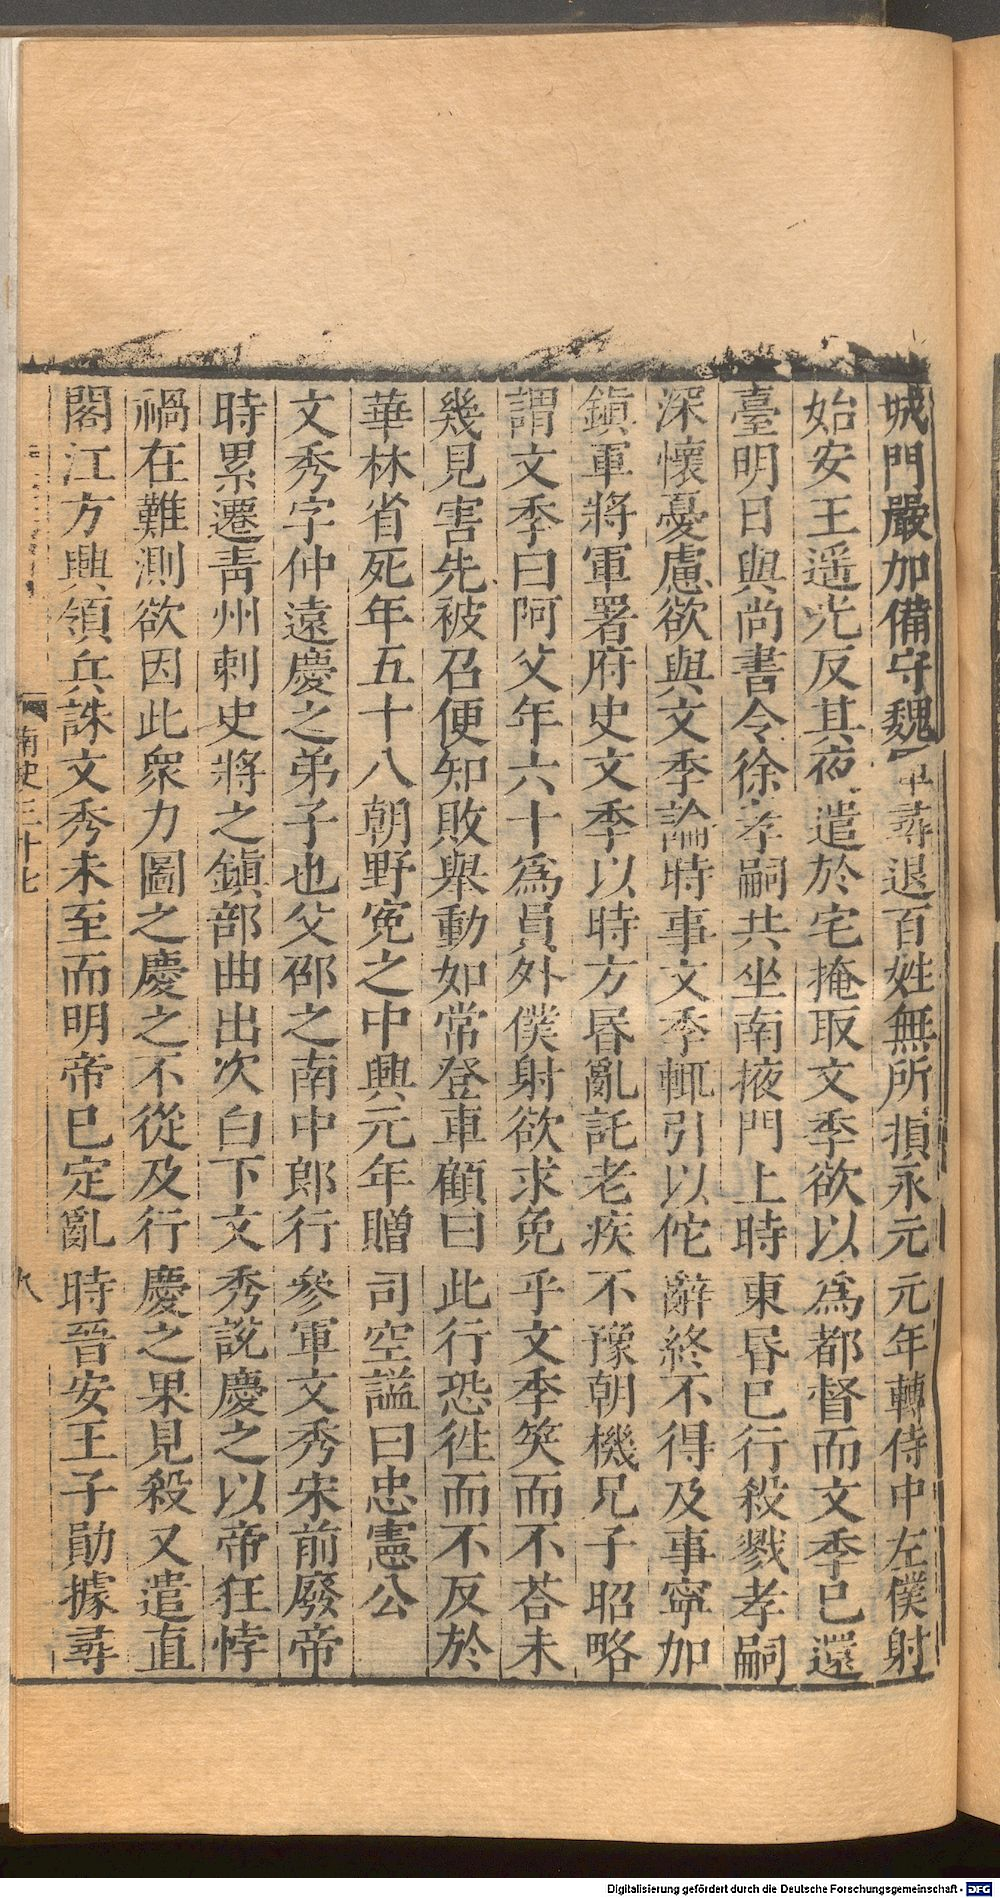 城門嚴加備守魏軍尋退百姓無所損永元元年轉侍中左僕射
始安王遥光反其夜遣於宅掩取文季欲以為都督而文季已還
臺明日與尚書令徐孝嗣共坐南掖門上時東昬已行殺戮孝嗣
深懷憂慮欲與文季論時事文季輒引以佗辭終不得及事寧加
鎮軍將軍署府史文季以時方昬亂託老疾不豫朝機兄子昭略
謂文季曰阿父年六十為員外僕射欲求免乎文季笑而不荅未
幾見害先被召便知敗舉動如常登車顧曰此行恐徃而不反於
華林省死年五十八朝野寃之中興元年贈司空諡曰忠憲公
文秀字仲遠慶之弟子也父邵之南中郎行參軍文秀宋前廢帝
時累遷青州刺史將之鎮部曲出次白下文秀說慶之以帝狂悖
禍在難測欲因此衆力圖之慶之不從及行慶之果見殺又遣直
閣江方興領兵誅文秀未至而明帝已定亂時晉安王子勛據尋
南史三十七
八
Digitalisierung gefördert durch die Deutsche Forschungsgemeinschaft - DFG